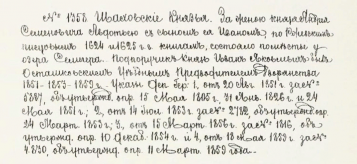 № 1358 Шаховскіе Князья. За женою князя Андрея
Семеновича Авдотьею съ сыномъ ея Иваномъ, по Ржевскимъ
писцовымъ 1624 и 1625 г.г. книгамъ, состояло помѣстье у
озера Селигера. Подпоручикъ Князь Иванъ Яковлевичъ былъ
Осташковскимъ Уѣзднымъ Предводителемъ Дворянства
1851-1853-1859 г. Указы Деп. Гер. 1, отъ 20 Авг. 1851 г. за №
5287, объ утвержд. опр. 15 Мая 1805 г. 31 Янв. 1826 г. и 24
Мая 1851 г.; 2, отъ 14 Іюн. 1853 г. за № 2782, объ утвержд. опр.
24 Марта 1853 г.; 3, отъ 15 Марта 1855 г. за № 1816, объ
утвержд. опр. 10 Декаб. 1854 г. и 4, отъ 18 Мая 1859 г. за №
4830, объ утвержд. опр. 11 Марта 1859 года.